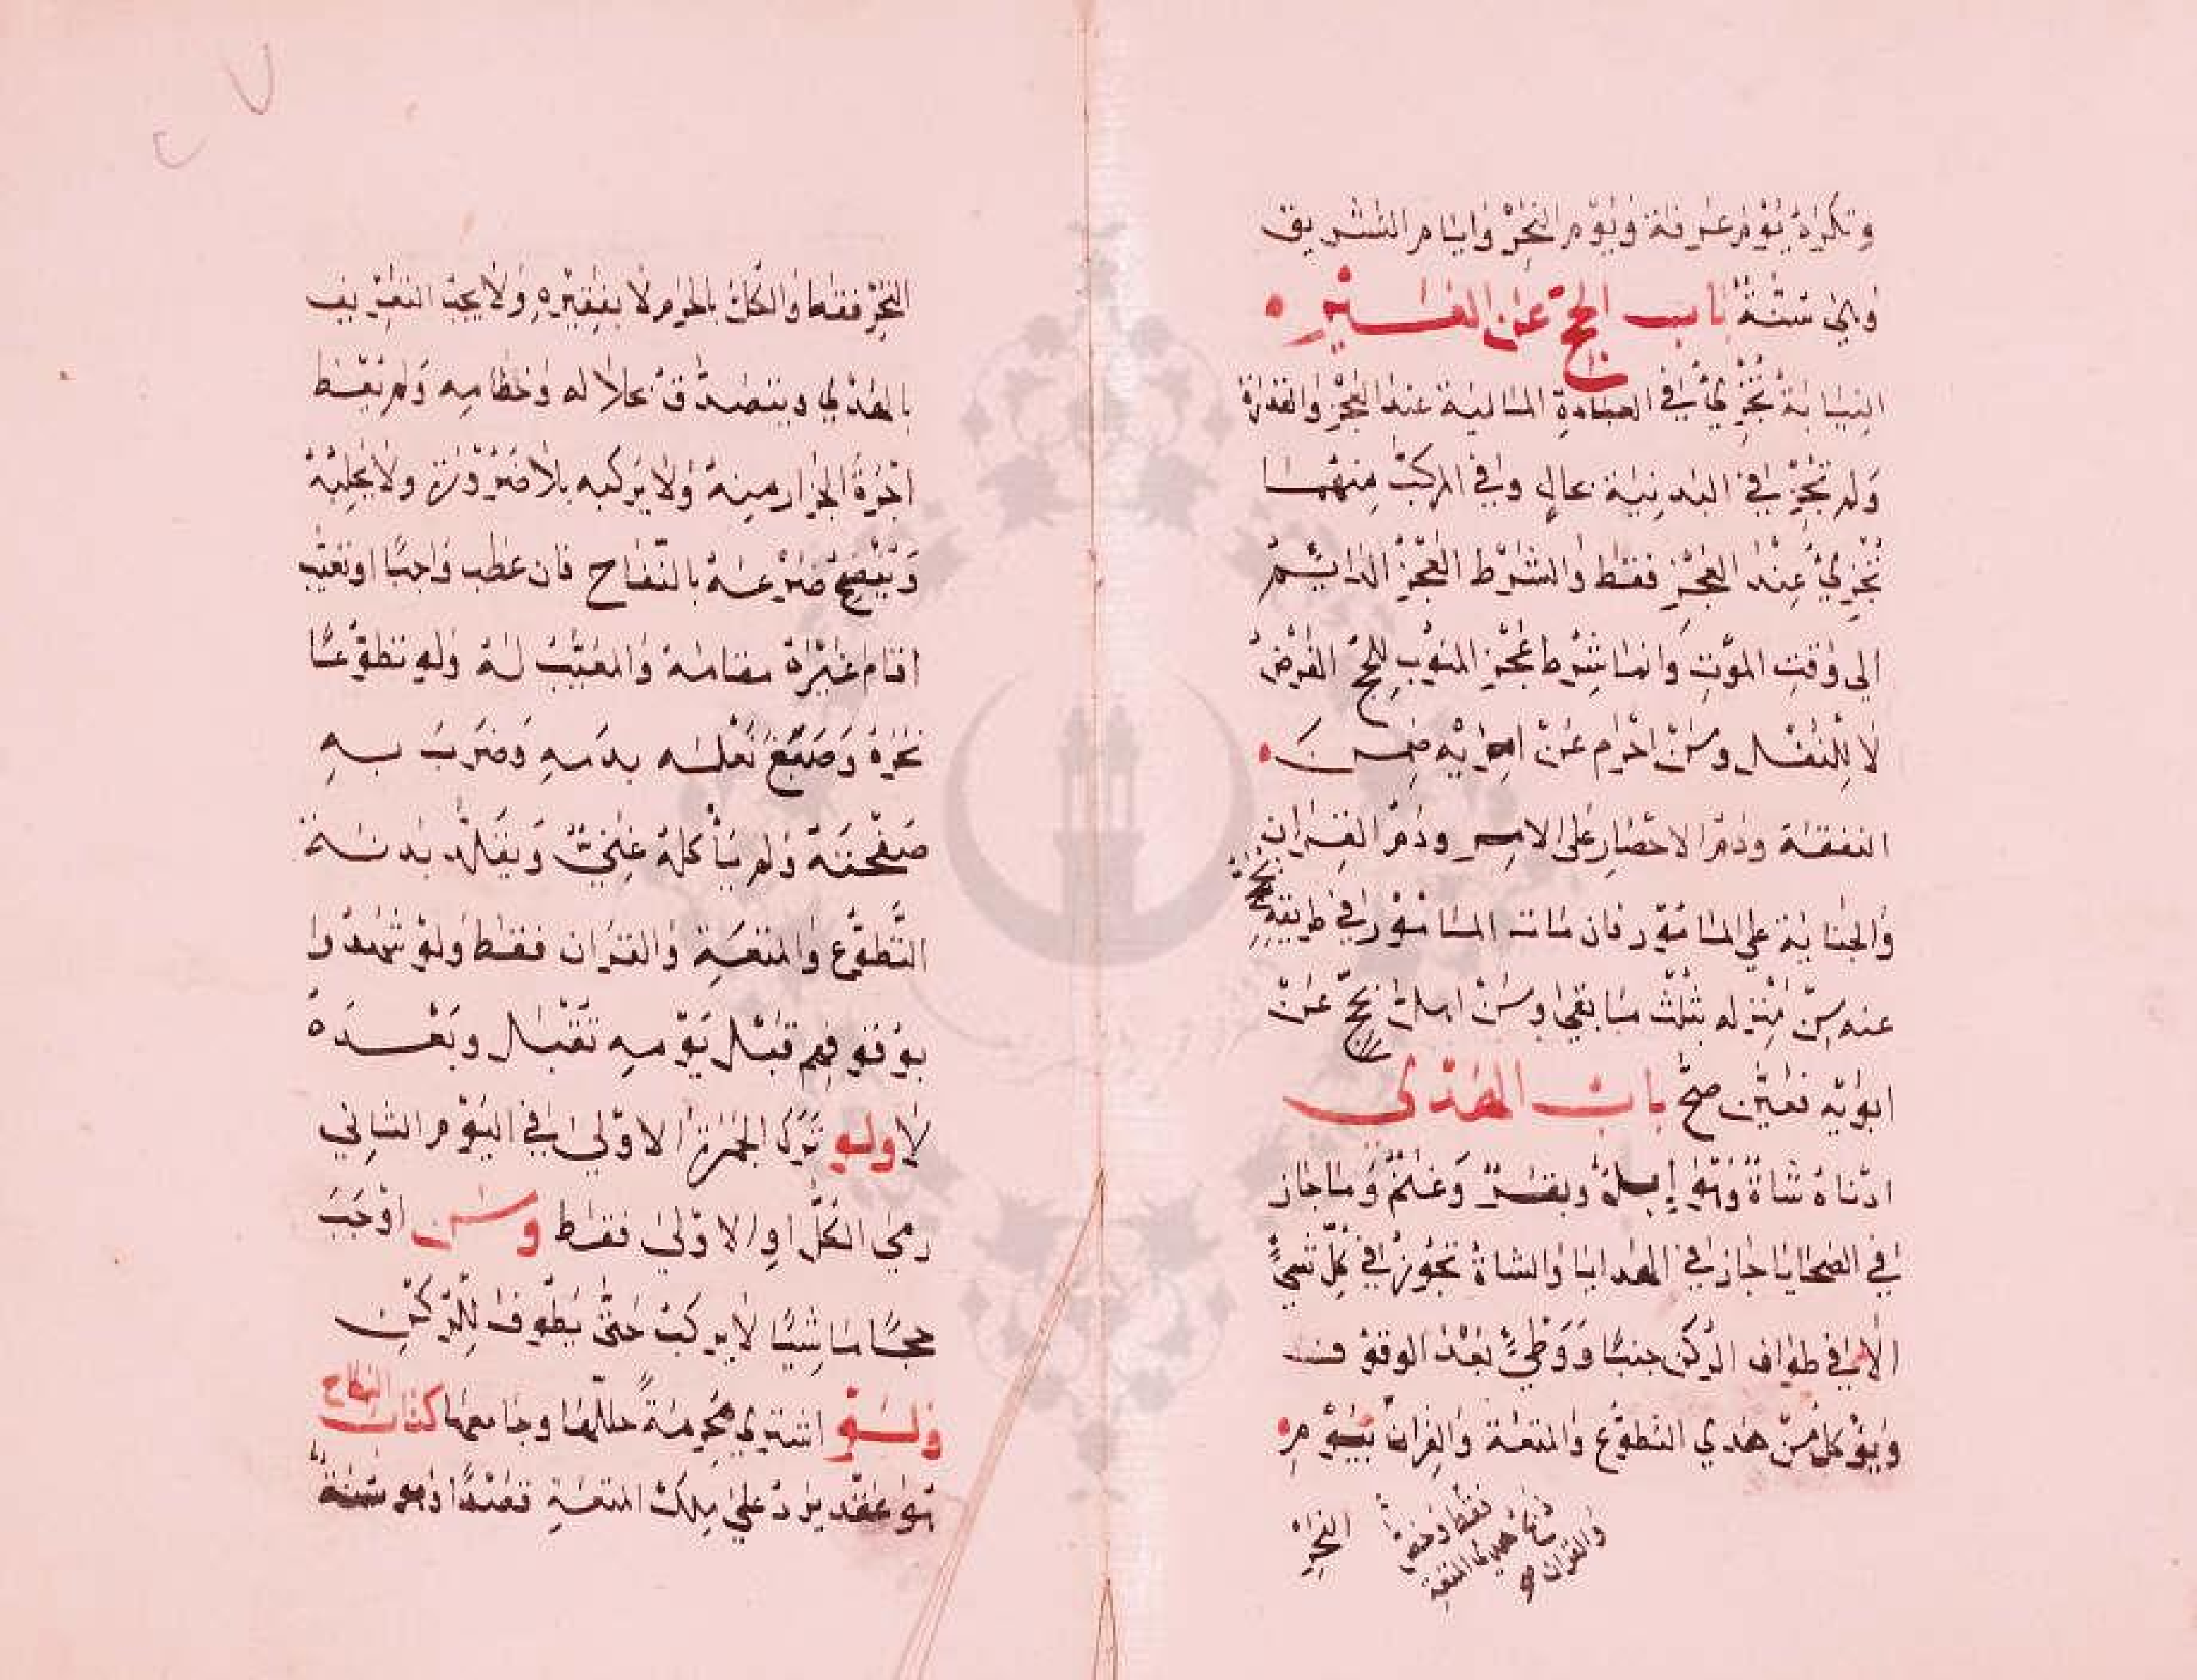 وتكره يوم عرفة ويوم النحر وايام التشريق
وهي سنة باب الحج عن الغير
النيابة تجزئ في العبادة المالية عند العجز والقدرة
ولم تجز في البدنية بحال وفي المركب منهما
تجزئ عند العجز فقط والشرط العجز الدايم
الي وقت الموت وانما شرط عجز المنوب للحج الفرض
لا للنفل ومن احرم عن امريه ضمن
النفقة ودم الاحصار على الامر ودم القران
والجناية علي المامور فان مات المامور في طريقه يحج
عنه من منزله بثلث ما بقي ومن اهل بحج عن
ابويه فعين صح باب الهدي
ادناه شاة وهو إبل وبقر وغنم وما جاز
في الضحايا جاز في الهدايا والشاة تجوز في كل شيء
الا في طواف الركن جنبا ووطئ بعد الوقوف
ويؤكل من هدي التطوع والمتعة والقران بيوم
فقط وخص
هدي المتعة
والقران
النحر
النحر فقط والكل بالحرم لا بفقيره ولا يجب التعريف
بالهدي ويتصدق بجلاله وخطامه ولم يعط
اجرة الجزار منه ولا يركبه بلا ضرورة ولا يحلبه
وينضح ضرعه بالنقاخ فان عطب واجبا او تعيب
اقام غيره مقامه والمعيب له ولو تطوعا
نحره وصبغ نعله بدمه وضرب به
صفحته ولم يأكله غني وتقلد بدنة
التطوع والمتعة والقران فقط ولو شهدوا
بوقوفهم قبل يومه تقبل وبعده
لا ولو ترك الجمرة الاولي في اليوم الثاني
رمي الكل او الاولي فقط ومن اوجب
حجا ماشيا لا يركب حتي يطوف للركن
ولو اشتري محرمة حللها وجامعها كتاب النكاح
هو عقد يرد علي ملك المتعة قصدا وهو سنة